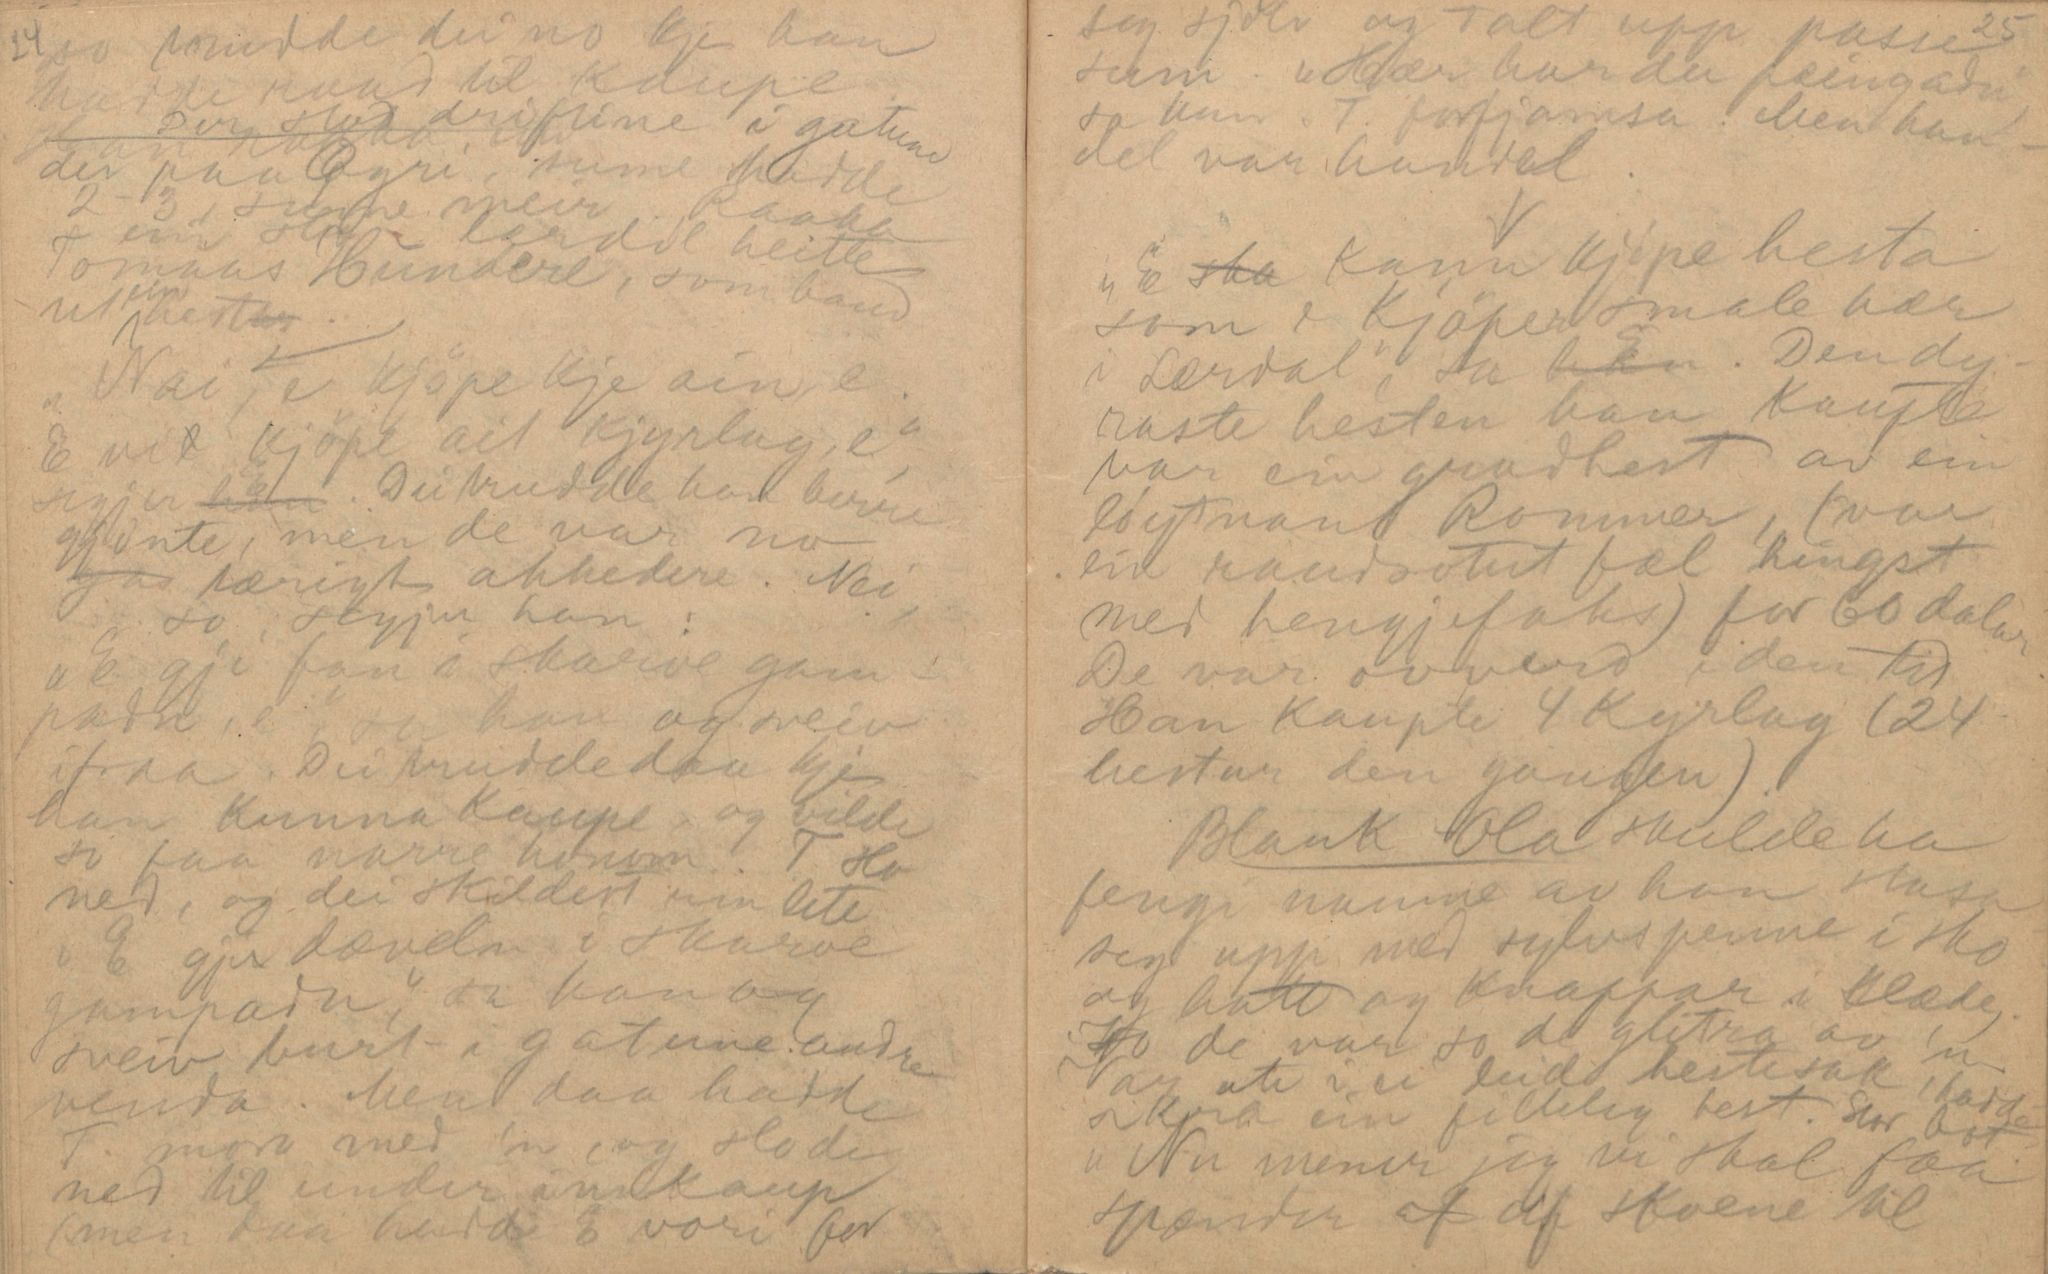 24
so trudde dei no kje han
hadde raad til kaupe.
Der stod driftine i gatune
der paa Øyri, sume hadde
2-3, sume meir. Raaka
ein stor lærdøl heitte
Tomaas Hunderi, som baud
ut hestar.
"Nai, e kjöpe kje ain, e.
E vil kjöpe ait kjyrlag, e"
segjer E. Dei trudde han berre
gjönte, men de var no
akkedere. Nei,
so, segjer han:
"E gje fan i skarve gam-
padn, e", sa han og sveiv
ifraa. Dei trudde daa kje
han kunna kaupe, og vilde
so faa narre honom. T slo
ned, og dei skildest ein lite
"E gjer dæveln i skarve
gampadn", sa han og
sveiv burt i gatune andre
venda. Men daa hadde
T. moro med 'n, og slo dei
ned til under innkaup
(men daa hadde E vori for
25
seg sjölv og talt upp passe
sum. "Hær har du peingadn",
sa han. T. forfjamsa. Men han-
del var handel.
"E ska kann kjöpe hesta
som e kjöper smale hær
i Lærdal", sa E. Den dy-
raste hesten han kaupte
var ein gradhest av ein
löytnant Rommer, (var
ein raudsotut fæl hingst
med hengjefaks) for 60 dalar
De var ovverd i den tid
Han kaupte 4 kyrlag (24
hestar den gongen).
Blank Ola skulde ha
fengi namne av han stasa
seg upp med sylvspenne i sko
og hatt og knappar i klæde,
so de var so de glitra av 'n
Var ute i ei leid hestesak, hadde
ein fillelig hest. Stor bot
"Nu mener jeg vi skal faa
spænder af skoene til